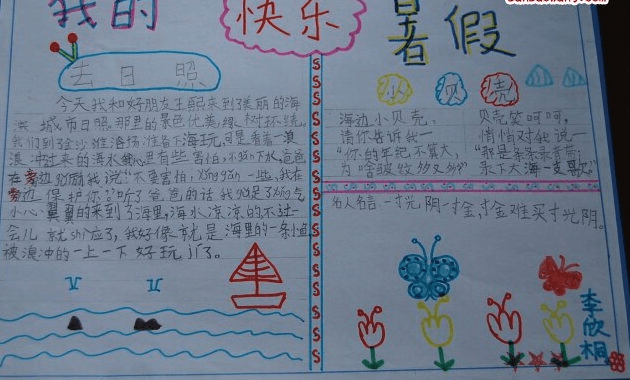 我的
快乐
暑假
去日照
今天我和好朋友王熙来到了美丽的海
滨城市日照,那里的景色优美,绿树环绕。
浪冲过来的海水 里有些害怕,不敢下水,爸爸
在旁边鼓励我说:"不要害怕,勇敢一些,我在
旁边保护你。"听了爸爸的话我鼓足了勇气
小心翼翼的来到了海里,海水凉凉的不过一
会儿就shì应了,我好像就是海里的一条小鱼
被浪冲的一上一下好玩儿了。
小贝壳
海边小贝壳,
请你告诉我一
"你的年纪不算大,
为啥皱纹多又多?"
贝壳笑呵呵,
悄悄对我说一
"那是
永下大海一支歌。"
名人名言:一寸光阴一寸金,寸金难买寸光阴。
李欣桐